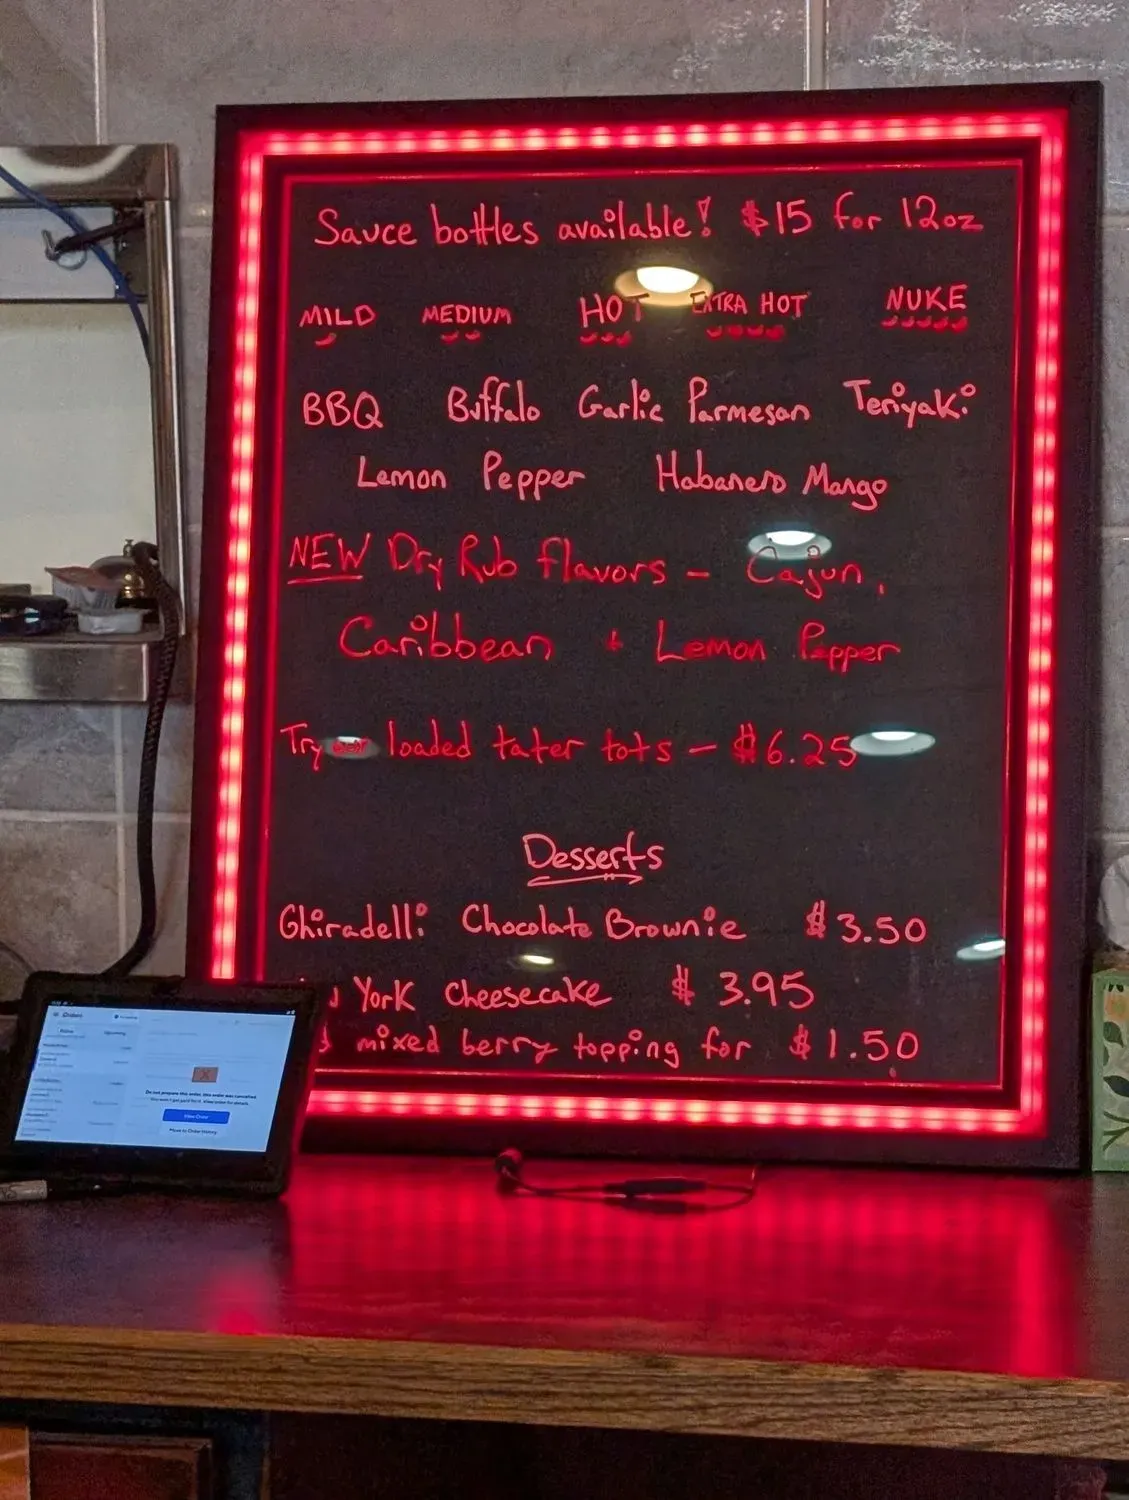 Sauce bottles available! $15 for 12oz
MILD MEDIUM HOT EXTRA HOT NUKE
BBQ Buffalo Garlic Parmesan Teriyaki
Lemon Pepper Habanero Mango
NEW Dry Rub flavors - Cajun,
Caribbean + Lemon Pepper
Try our loaded tater tots - $6.25
Desserts
Ghiradelli Chocolate Brownie $3.50
York Cheesecake $3.95
mixed berry topping for $1.50
Orders
Do not prepare this order, this order was cancelled
View Order
Move to Order History